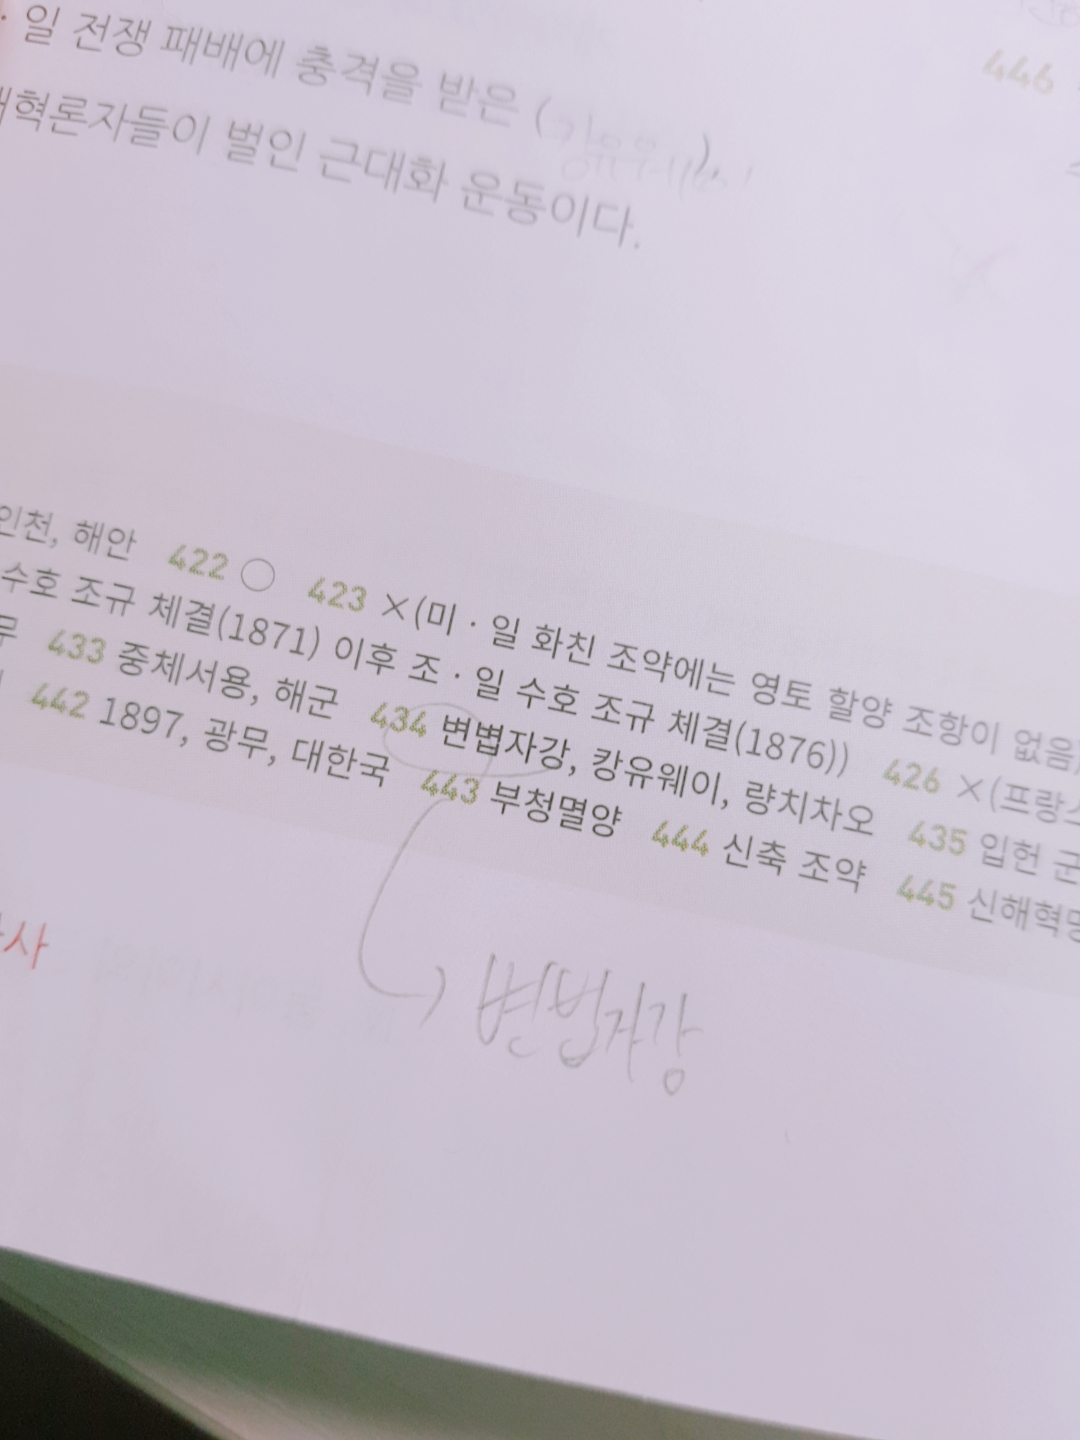 일 전쟁 패배에 충격을 받은 (
혁론자들이 벌인 근대화 운동이다.
446
인천, 해안 422 ○ 423 ×(미·일 화친 조약에는 영토 할양 조항이 없음)
수호 조규 체결(1871) 이후 조·일 수호 조규 체결(1876)) 426 ×(프랑스
433 중체서용, 해군 434 변볍자강, 캉유웨이, 량치차오 435 입헌 군
442 1897, 광무, 대한국 443 부청멸양 444 신축 조약 445 신해혁명
사
변법자강